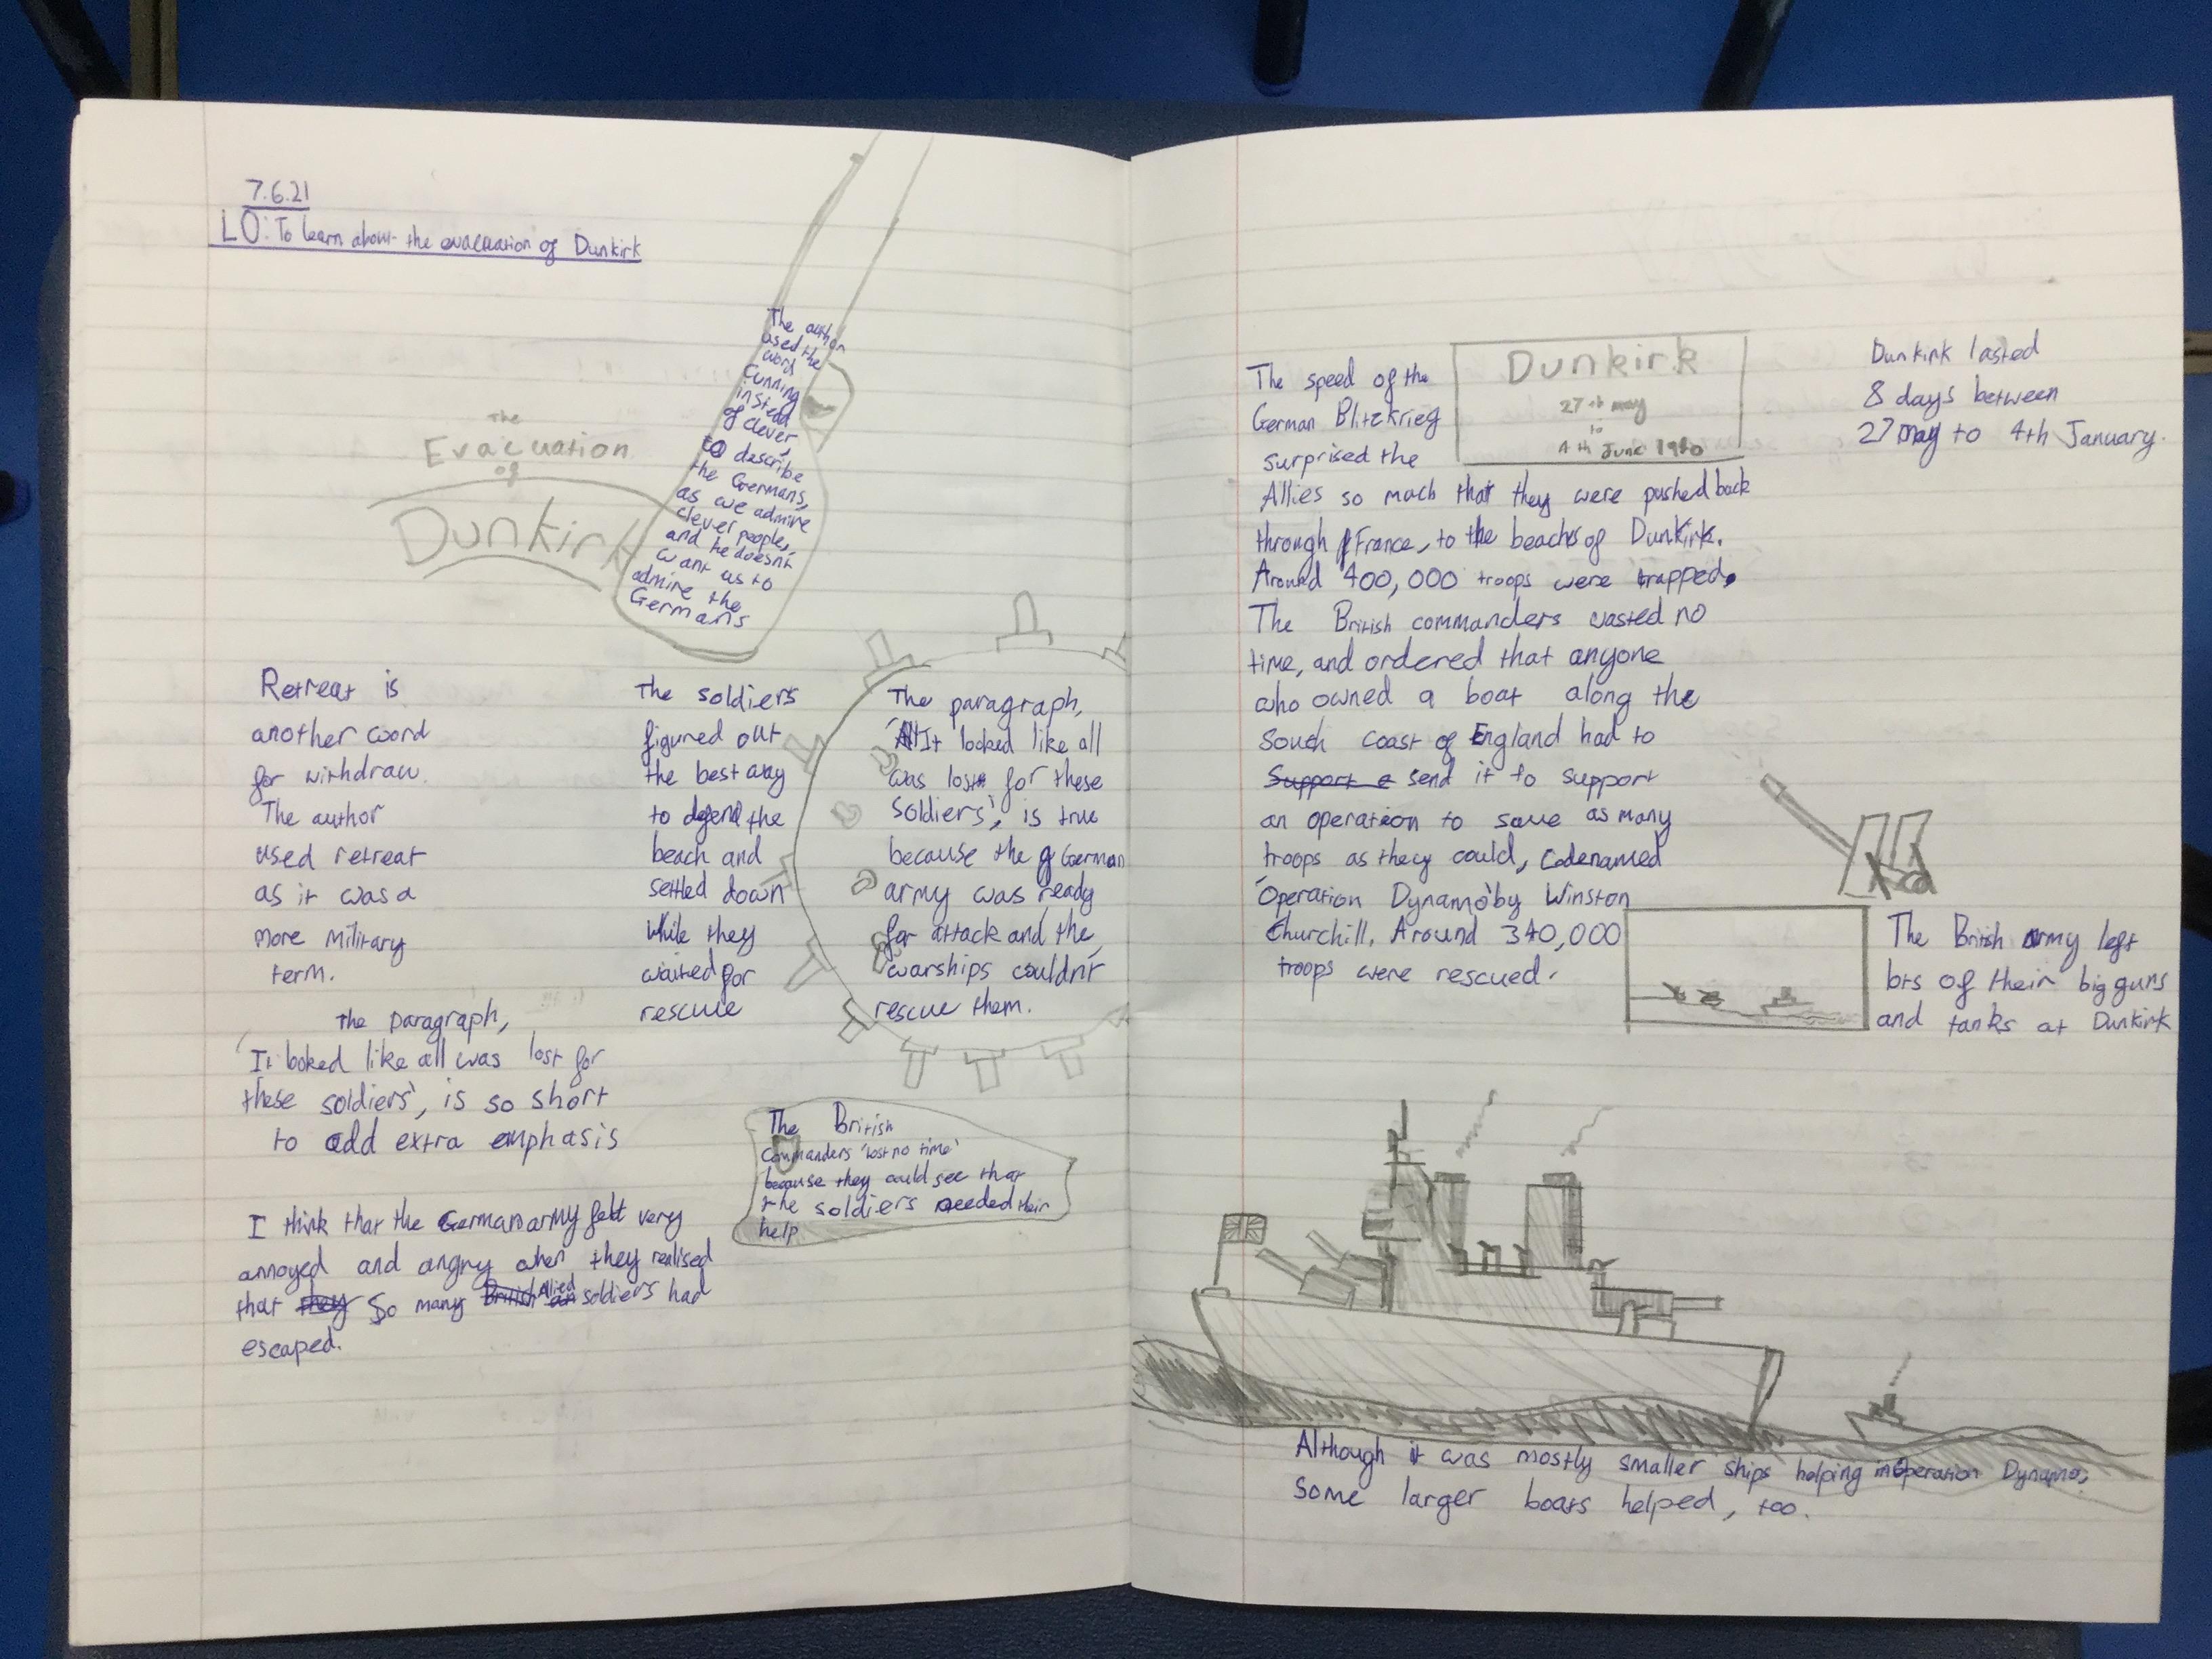 7.6.21
LO: To learn about the evacuation of Dunkirk
The
Evacuation
of
Dunkirk
The author
used the
word
Cunning
instead
of clever,
to describe
the Germans,
as we admire
clever people,
and he doesn't
want us to
admire the
Germans
Retreat is
another word
for withdraw.
The author
used retreat
as it was a
more military
term.
The paragraph,
'It looked like all was lost for
these soldiers', is so short
to add extra emphasis
I think that the German army felt very
annoyed and angry when they realised
that they So many British Allied soldiers had
escaped.
The soldiers
figured out
the best way
to defend the
beach and
settled down
while they
waited for
rescue
The paragraph,
'It looked like all
was lost for these
soldiers', is true
because the German
army was ready
for attack and the
warships couldn't
rescue them.
The British
Commanders 'lost no time'
because they could see that
the soldiers needed their
help
Dunkirk
27th may
to
4th June 1940
The speed of the
German Blitzkrieg
surprised the
Allies so mach that they were pushed back
through France, to the beachs of Dunkirk.
Around 400,000 troops were trapped.
The British commanders wasted no
time, and ordered that anyone
who owned a boat along the
South coast of England had to
Support send it to support
an operation to save as many
troops as they could, Codenamed
'Operation Dynamo' by Winston
Churchill. Around 340,000
troops were rescued.
Dunkirk lasted
8 days between
27 may to 4th January.
The British army left
lots of their big guns
and tanks at Dunkirk
Although it was mostly smaller ships helping in Operation Dynamo,
Some larger boats helped, too.